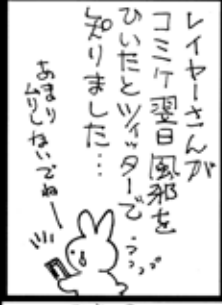 レイヤーさんが
コミケ翌日風邪を
ひいたとツイッターで
知りました…
あまり
ムリしないでねー
うっうっ